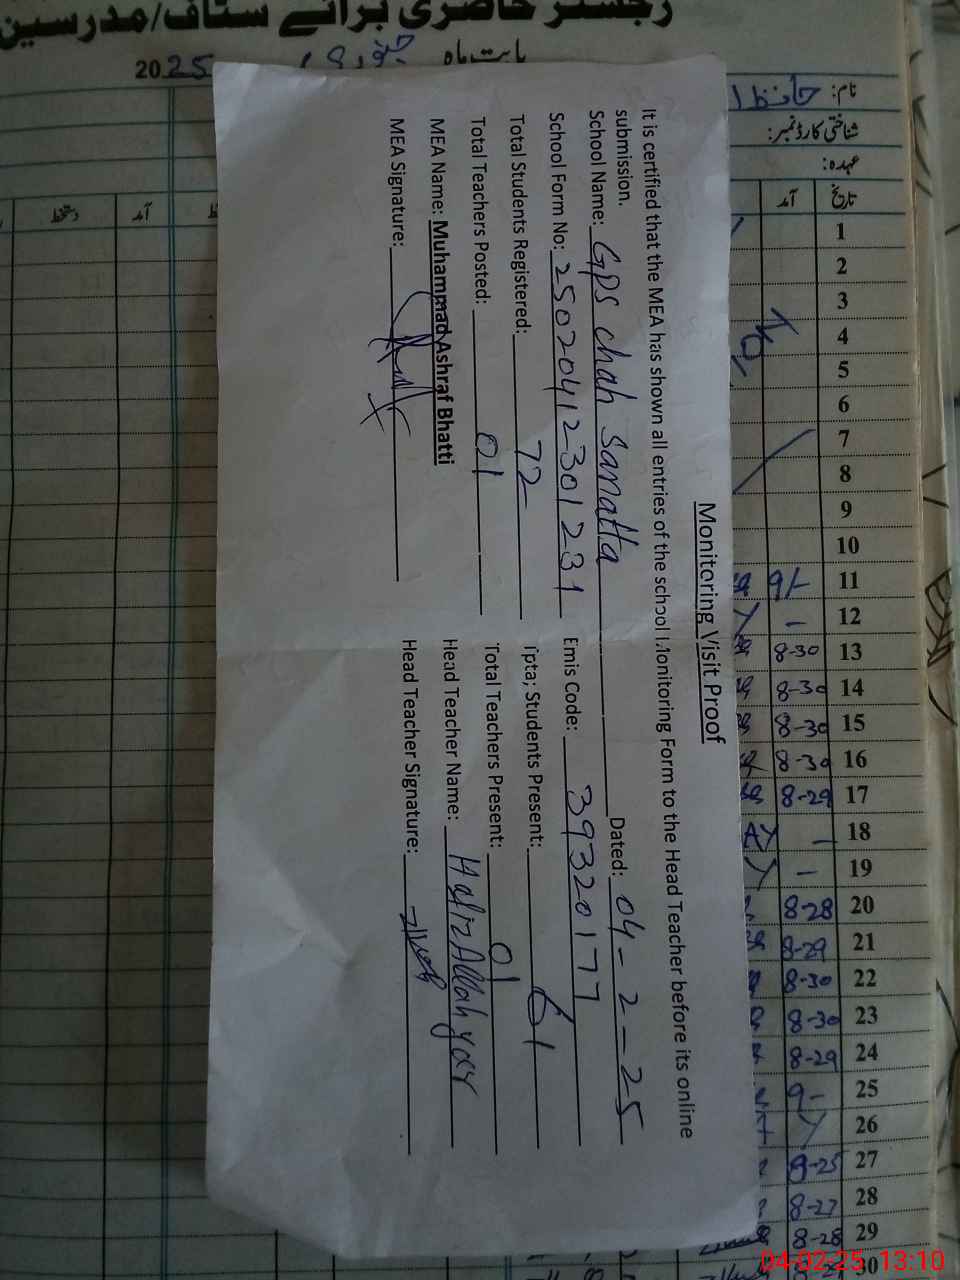 رجسٹر حاضری برائے سٹاف/مدرسین
بابت ماہ جنوری 2025
نام: حافظ ا
شناختی کارڈ نمبر:
عہدہ:
تاریخ آمد
دستخط آمد
Monitoring Visit Proof
It is certified that the MEA has shown all entries of the school Monitoring Form to the Head Teacher before its online
submission.
School Name: GPS chah Sanatta Dated: 04-2-25
School Form No: 25020412301231 Emis Code: 39320177
Total Students Registered: 72 Tpta; Students Present: 61
Total Teachers Posted: 01 Total Teachers Present: 01
MEA Name: Muhammad Ashraf Bhatti Head Teacher Name: Hafiz Allah yar
MEA Signature: Head Teacher Signature:
1
2
3
4
5
6
7
8
9
10
11 9/-
12 -
13 8-30
14 8-30
15 8-30
16 8-30
17 8-29
18 -
19 -
20 8-28
21 8-29
22 8-30
23 8-30
24 8-29
25 9-
26
27 8-25
28 8-27
29 8-28
30
04-02-25 13:10